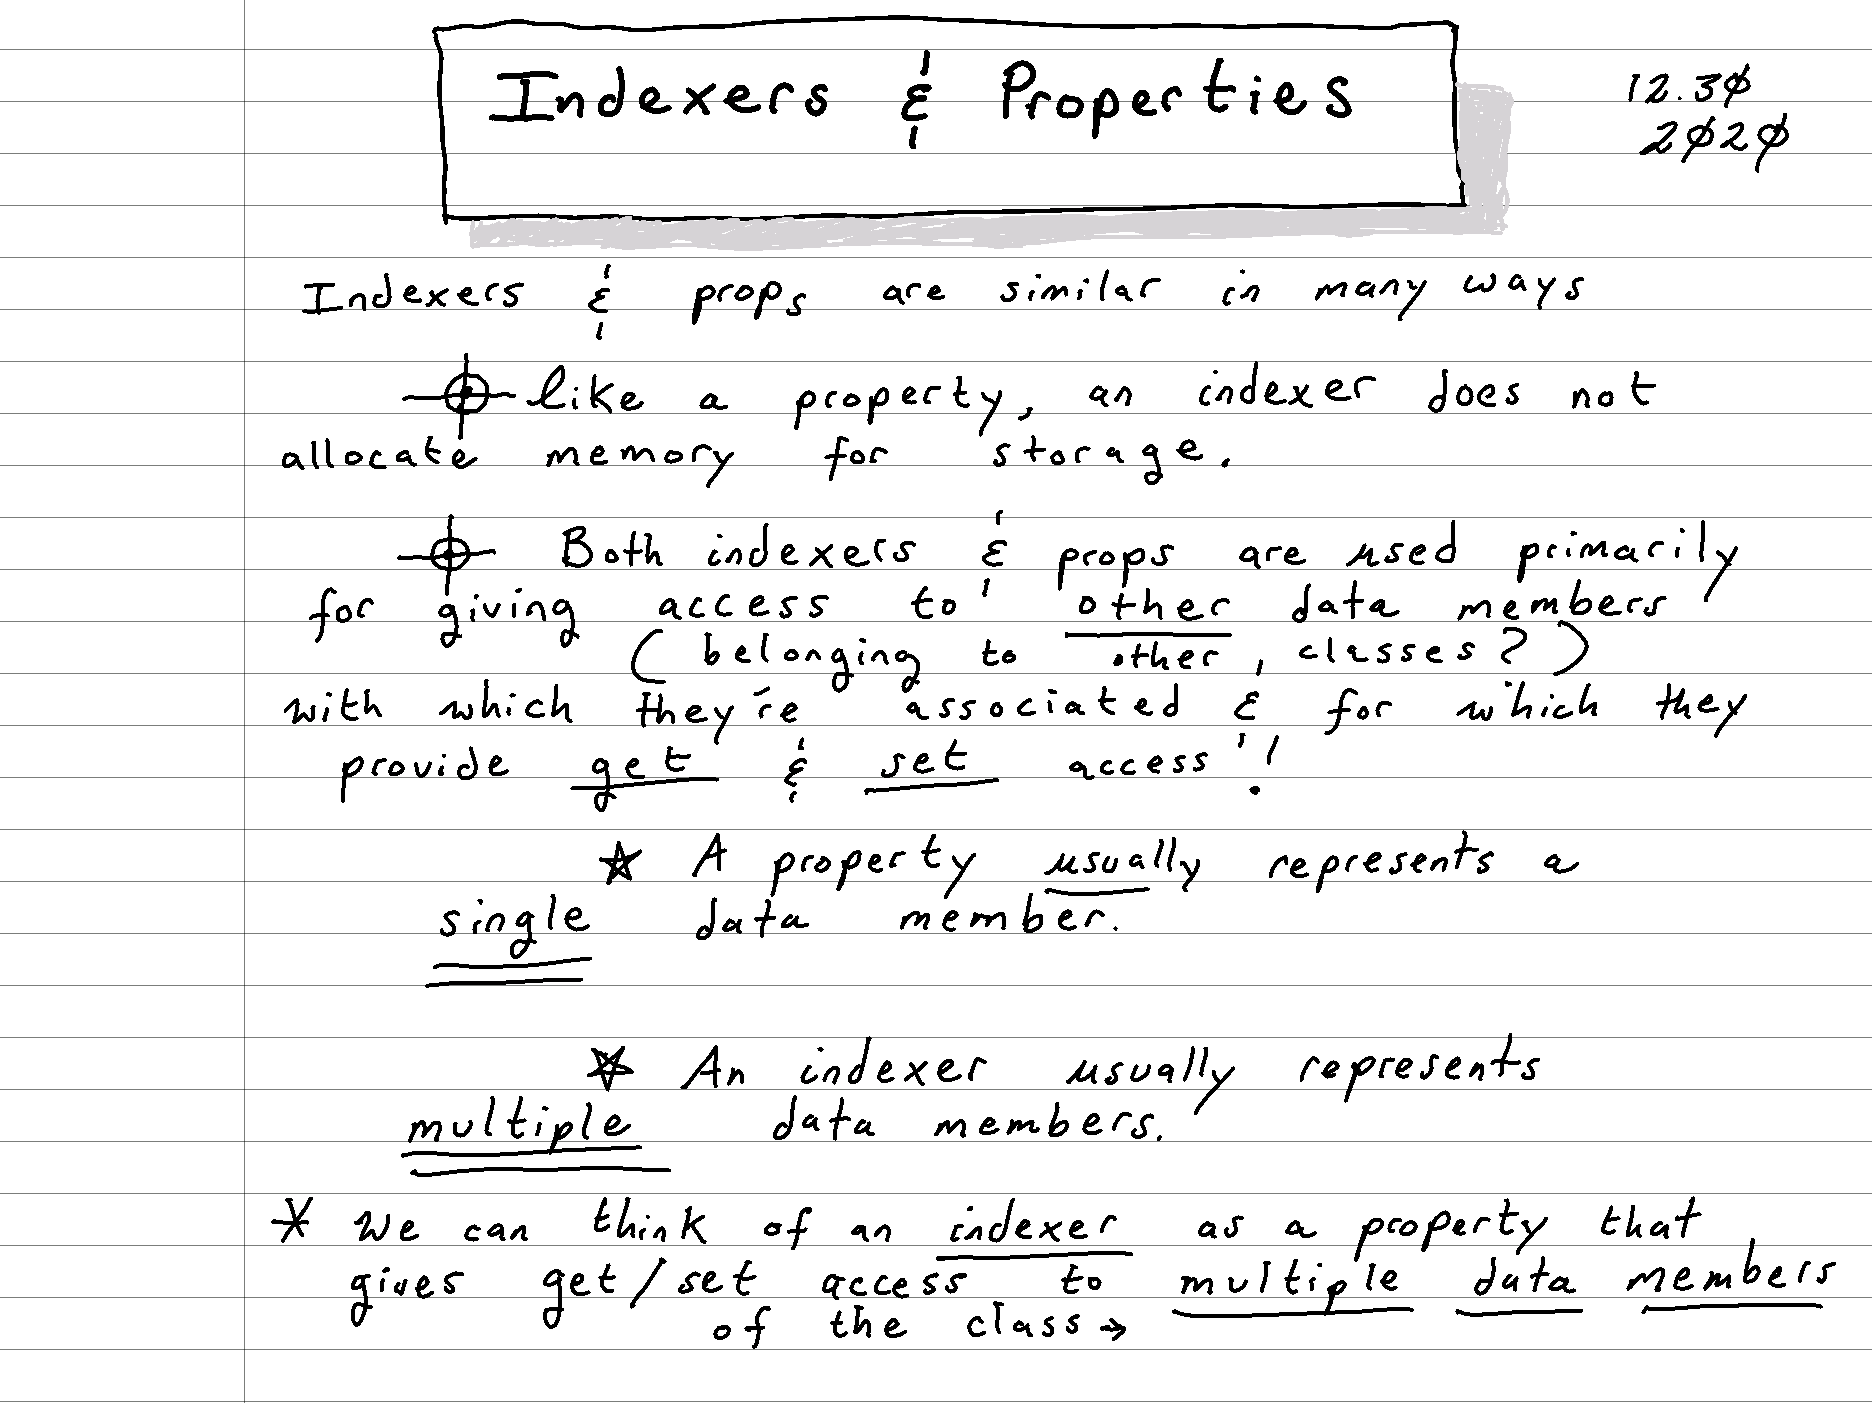 Indexers & Properties
12.30
2020
Indexers & props are similar in many ways
like a property, an indexer does not
allocate memory for storage.
Both indexers & props are used primarily
for giving access to other data members
(belonging to other classes?)
with which they're associated & for which they
provide get & set access!
☆ A property usually represents a
single data member.
☆ An indexer usually represents
multiple data members.
* We can think of an indexer as a property that
gives get/set access to multiple data members
of the class →